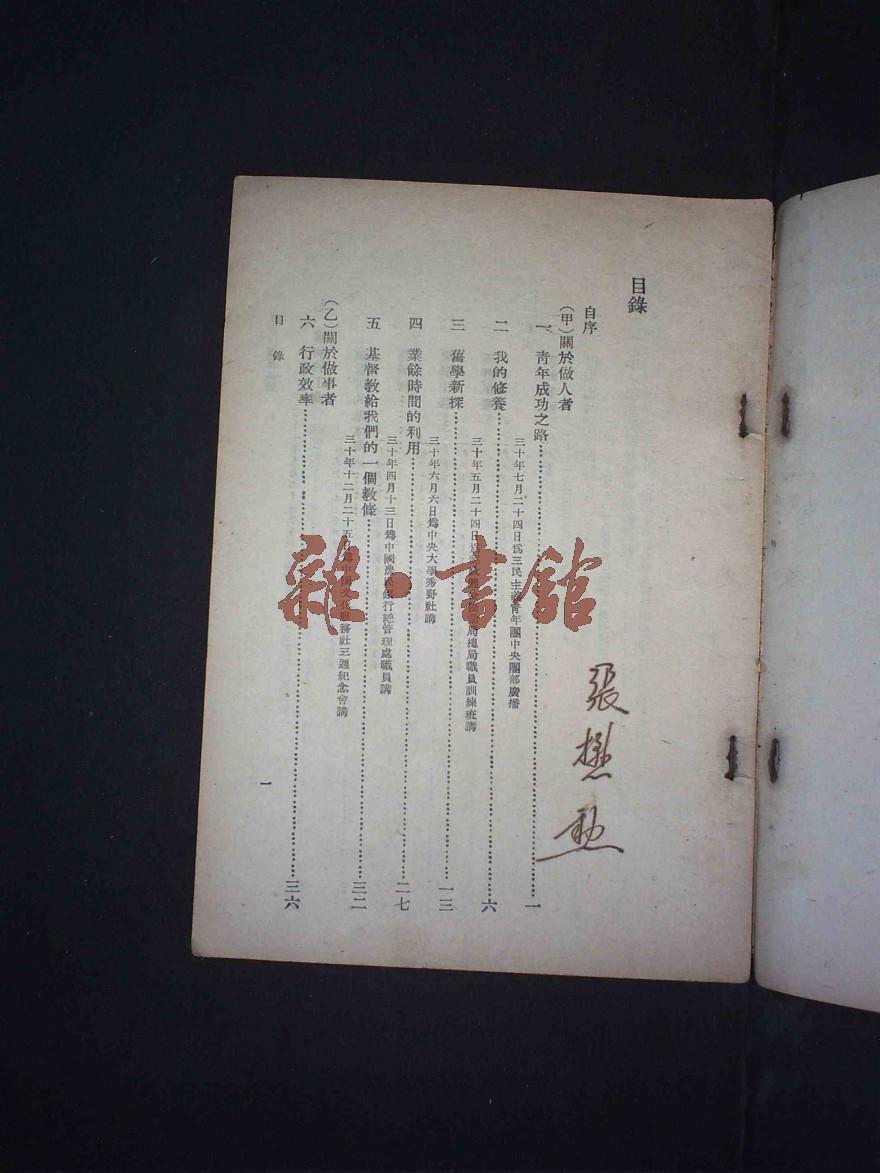 目錄
自序
(甲)關於做人者
一 青年成功之路……一
三十年七月二十四日爲三民主義青年團中央團部廣播
二 我的修養……六
三十年五月二十四日 局總局職員訓練班講
三 舊學新探……一三
三十年六月六日爲中央大學秀野社講
四 業餘時間的利用……二七
三十年四月十三日爲中國農民銀行總管理處職員講
五 基督教給我們的一個教條……三二
三十年十二月二十五日爲中國文化服務社三週紀念會講
(乙)關於做事者
六 行政效率……三六
目錄
一
張懋勳
雜·書館